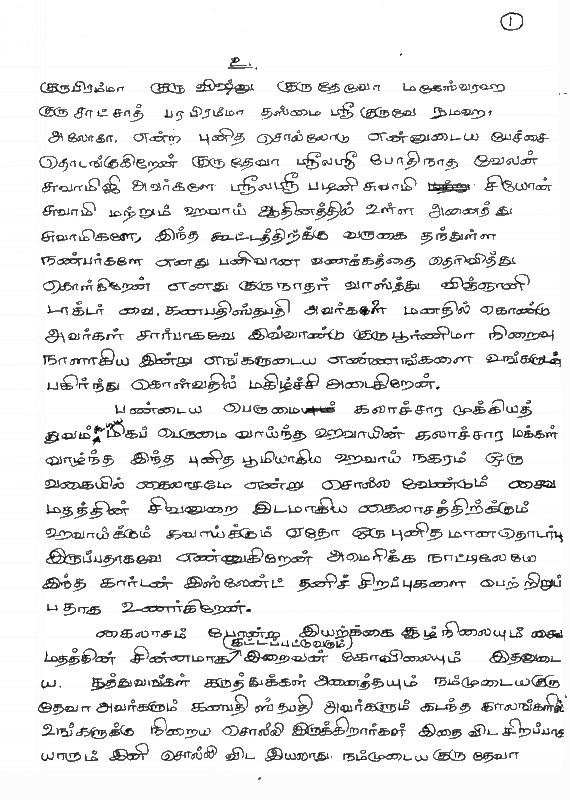 1
உ.
குருபிரம்மா குரு விஷ்னு குரு தேவோ மகேஸ்வரஹ
குரு சாட்சாத் பரபிரம்மா தஸ்மை ஸ்ரீ குருவே நமஹ,
அலோகா, என்ற புனித சொல்லோடு என்னுடைய பேச்சை
தொடங்குகிறேன் குருதேவா ஸ்ரீலஸ்ரீ போதிநாத வேலன்
சுவாமிஜி அவர்களே ஸ்ரீலஸ்ரீ பழனி சுவாமி சிவோன்
சுவாமி மற்றும் ஹவாய் ஆதினத்தில் உள்ள அனைத்து
சுவாமிகளே, இந்த கூட்டத்திற்க்கு வருகை தந்துள்ள
நண்பர்களே எனது பனிவான வணக்கத்தை தெரிவித்து
கொள்கிறேன் எனது குருநாதர் வாஸ்த்து வித்ஞானி
டாக்டர் வை. கணபதிஸ்தபதி அவர்களை மனதில் கொண்டு
அவர்கள் சார்பாகவே இவ்வாண்டு குருபூர்ணிமா நிறைவு
நாளாகிய இன்று எங்களுடைய எண்ணங்களை உங்களுடன்
பகிர்ந்து கொள்வதில் மகிழ்ச்சி அடைகிறேன்.
பண்டைய பெருமை கலாச்சார முக்கியத்
துவம் மிகப் பெருமை வாய்ந்த ஹவாயின் கலாச்சார மக்கள்
வாழ்ந்த இந்த புனித பூமியாகிய ஹவாய் நகரம் ஒரு
வகையில் கைலாசமே என்று சொல்ல வேண்டும் சைவ
மதத்தின் சிவனுறை இடமாகிய கைலாசத்திற்க்கும்
ஹவாய்க்கும் கவாய்க்கும் ஏதோ ஒரு புனிதமான தொடர்பு
இருப்பதாகவே எண்ணுகிறேன் அமெரிக்க நாட்டிலேயே
இந்த கார்டன் இஸ்லேண்ட் தனிச் சிறப்புகளை பெற்றிருப்
பதாக உணர்கிறேன்.
கைலாசம் போன்ற இயற்க்கை சூழ்நிலையும் சைவ
மதத்தின் சின்னமாக (கட்டப்பட்டுவரும்) இறைவன் கோவிலையும் இதனுடை
ய. தத்துவங்கள் கருத்துக்கள் அனைத்தயும் நம்முடைய குரு
தேவா அவர்களும் கணபதி ஸ்தபதி அவர்களும் கடந்த காலங்களில்
உங்களுக்கு நிறைய சொல்லி இருக்கிறார்கள் இதை விட சிறப்பாக
யாரும் இனி சொல்லி விட இயலாது. நம்முடைய குரு தேவா